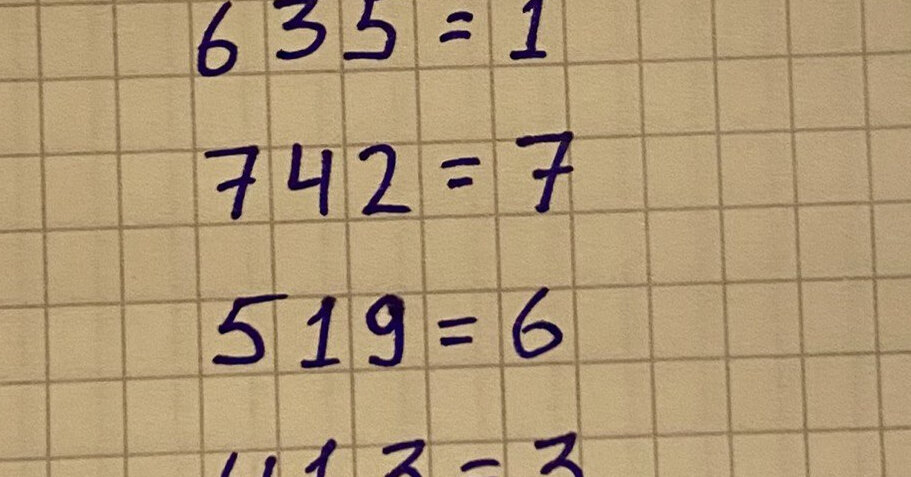 635 = 1
742 = 7
519 = 6